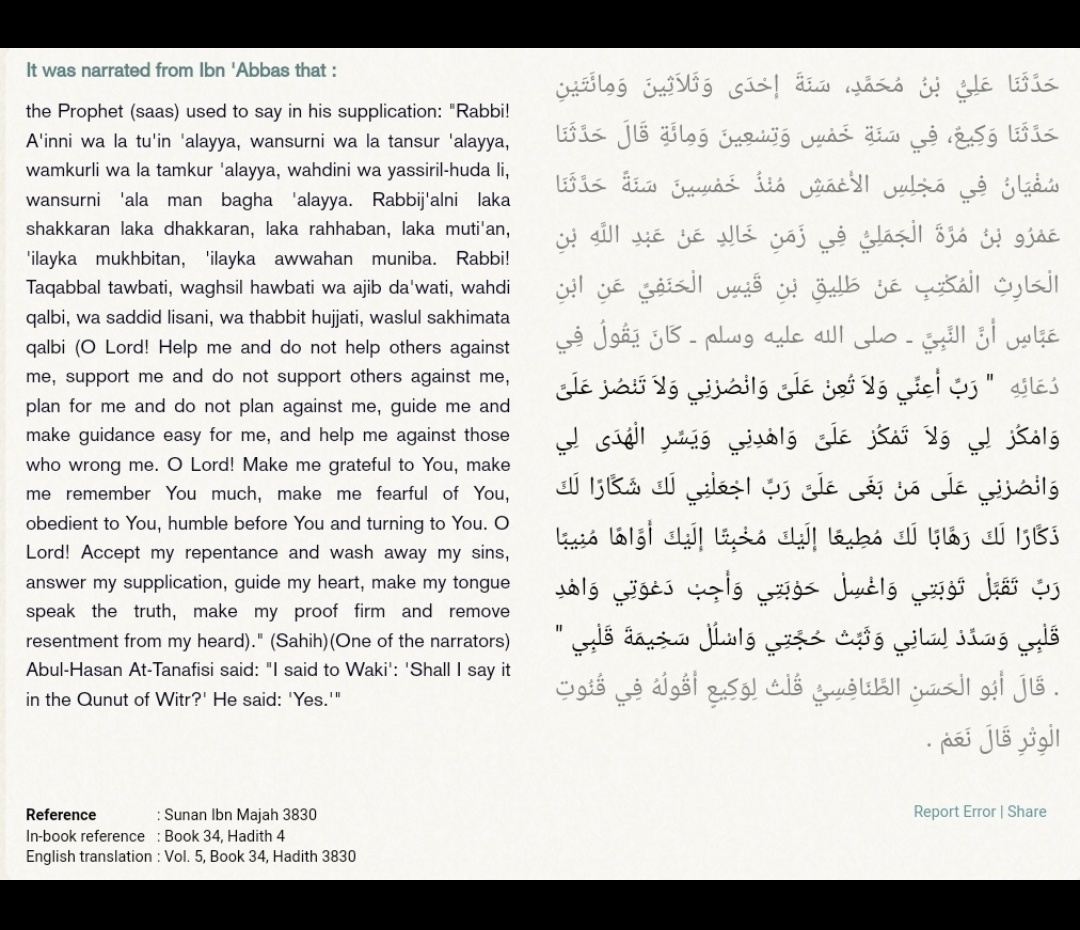 It was narrated from Ibn 'Abbas that :
the Prophet (saas) used to say in his supplication: "Rabbi!
A'inni wa la tu'in 'alayya, wansurni wa la tansur 'alayya,
wamkurli wa la tamkur 'alayya, wahdini wa yassiril-huda li,
wansurni 'ala man bagha 'alayya. Rabbij'alni laka
shakkaran laka dhakkaran, laka rahhaban, laka muti'an,
'ilayka mukhbitan, 'ilayka awwahan muniba. Rabbi!
Taqabbal tawbati, waghsil hawbati wa ajib da'wati, wahdi
qalbi, wa saddid lisani, wa thabbit hujjati, waslul sakhimata
qalbi (O Lord! Help me and do not help others against
me, support me and do not support others against me,
plan for me and do not plan against me, guide me and
make guidance easy for me, and help me against those
who wrong me. O Lord! Make me grateful to You, make
me remember You much, make me fearful of You,
obedient to You, humble before You and turning to You. O
Lord! Accept my repentance and wash away my sins,
answer my supplication, guide my heart, make my tongue
speak the truth, make my proof firm and remove
resentment from my heard)." (Sahih)(One of the narrators)
Abul-Hasan At-Tanafisi said: "I said to Waki': 'Shall I say it
in the Qunut of Witr?' He said: 'Yes.'"
حَدَّثَنَا عَلِيُّ بْنُ مُحَمَّدٍ، سَنَةَ إِحْدَى وَثَلاَثِينَ وَمِائَتَيْنِ
حَدَّثَنَا وَكِيعٌ، فِي سَنَةِ خَمْسٍ وَتِسْعِينَ وَمِائَةٍ قَالَ حَدَّثَنَا
سُفْيَانُ فِي مَجْلِسِ الأَعْمَشِ مُنْذُ خَمْسِينَ سَنَةً حَدَّثَنَا
عَمْرُو بْنُ مُرَّةَ الْجَمَلِيُّ فِي زَمَنِ خَالِدٍ عَنْ عَبْدِ اللَّهِ بْنِ
الْحَارِثِ الْمُكْتِبِ عَنْ طَلِيقِ بْنِ قَيْسٍ الْحَنَفِيِّ عَنِ ابْنِ
عَبَّاسٍ أَنَّ النَّبِيَّ ـ صلى الله عليه وسلم ـ كَانَ يَقُولُ فِي
دُعَائِهِ ‏ "‏ رَبِّ أَعِنِّي وَلاَ تُعِنْ عَلَىَّ وَانْصُرْنِي وَلاَ تَنْصُرْ عَلَىَّ
وَامْكُرْ لِي وَلاَ تَمْكُرْ عَلَىَّ وَاهْدِنِي وَيَسِّرِ الْهُدَى لِي
وَانْصُرْنِي عَلَى مَنْ بَغَى عَلَىَّ رَبِّ اجْعَلْنِي لَكَ شَكَّارًا لَكَ
ذَكَّارًا لَكَ رَهَّابًا لَكَ مُطِيعًا إِلَيْكَ مُخْبِتًا إِلَيْكَ أَوَّاهًا مُنِيبًا
رَبِّ تَقَبَّلْ تَوْبَتِي وَاغْسِلْ حَوْبَتِي وَأَجِبْ دَعْوَتِي وَاهْدِ
قَلْبِي وَسَدِّدْ لِسَانِي وَثَبِّتْ حُجَّتِي وَاسْلُلْ سَخِيمَةَ قَلْبِي ‏"‏
‏.‏ قَالَ أَبُو الْحَسَنِ الطَّنَافِسِيُّ قُلْتُ لِوَكِيعٍ أَقُولُهُ فِي قُنُوتِ
الْوِتْرِ قَالَ نَعَمْ ‏.‏
Reference : Sunan Ibn Majah 3830
In-book reference : Book 34, Hadith 4
English translation : Vol. 5, Book 34, Hadith 3830
Report Error | Share